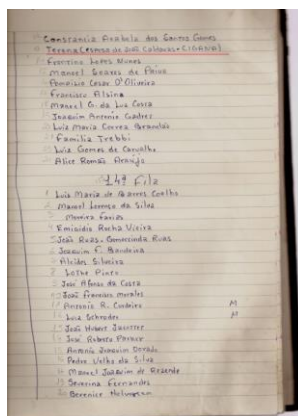 Constancia Arabela dos Santos Gomes
Tereza (esposa de José Caldeiras - CIGANA)
Francisco Lopes Nunes
Manoel Soares de Paiva
Pompilio Cesar D'Oliveira
Francisco Alsina
Manoel G. da Luz Costa
Joaquim Antonio Gadret
Luiz Maria Correa
Familia Trebbi
Luiz Gomes de Carvalho
Alice Romão Araujo
14ª Fila
1 Luiz Maria de Coelho
2 Manoel Lourenço da Silva
3 Moreira Farias
4 Emigidio Rocha Vieira
5 José Ruas. Gomercinda Ruas
6 Joaquim F. Bandeira
7 Alcides Silveira
8 Pinto
9 José Afonso da Costa
10 José Francisco Morales
11 Antonio R. Cordeiro M
12 Luiz Schroder M
13 José Hubert
14 José Roberto
Antonio Joaquim Dorado
Pedro Velho da Silva
Manoel Joaquim de Rezende
Severina Fernandes
20 Berenice